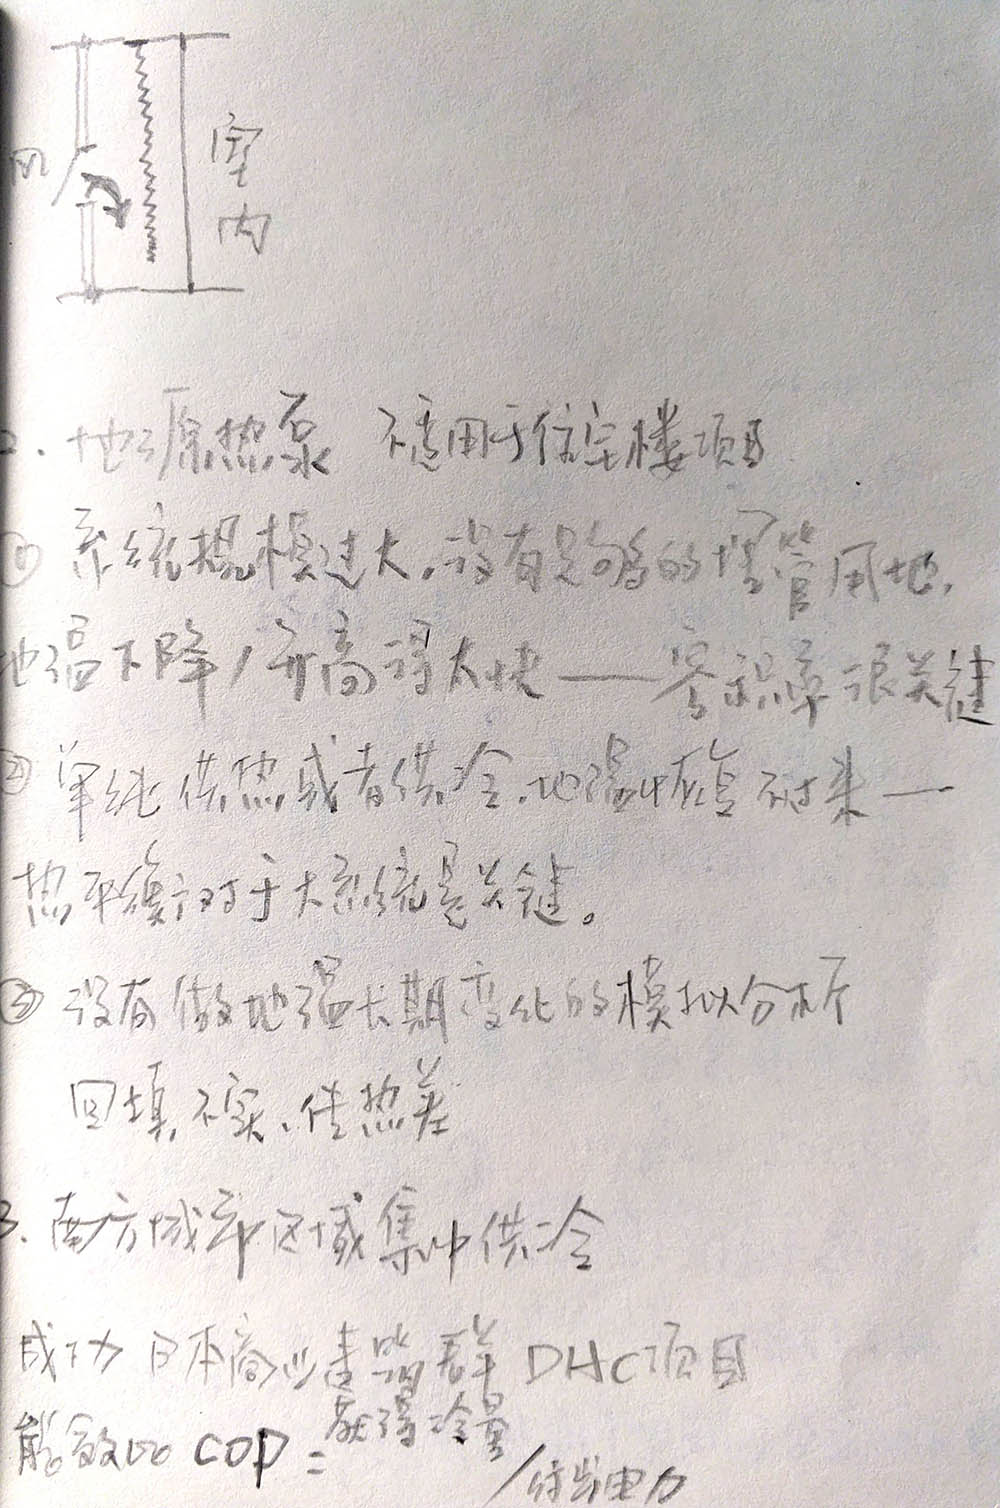 风
室
内
2. 地源热泵 不适用于住宅楼项目
① 系统规模过大,没有足够的埋管用地,
地温下降/升高得太快——容积率很关键
② 单纯供热或者供冷,地温恢复不过来—
热平衡对于大系统是关键。
③ 没有做地温长期变化的模拟分析
回填不实、传热差
3. 南方城市区域集中供冷
成功 日本商业建筑群 DHC项目
能效比 COP = 获得冷量
/付出电力